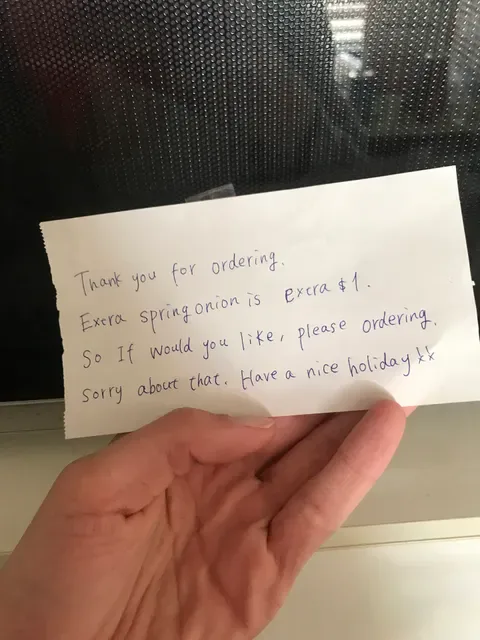 Thank you for ordering.
Extra spring onion is extra $1.
So If would you like, please ordering.
Sorry about that. Have a nice holiday xx